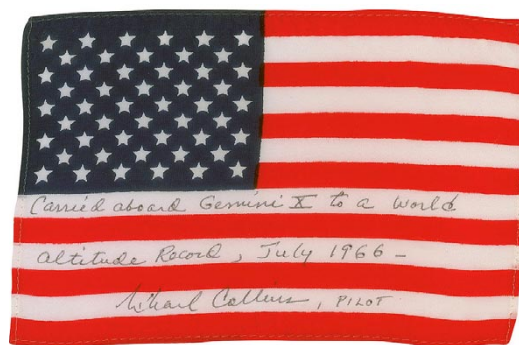 Carried aboard Gemini X to a World
altitude Record, July 1966 –
Michael Collins, PILOT